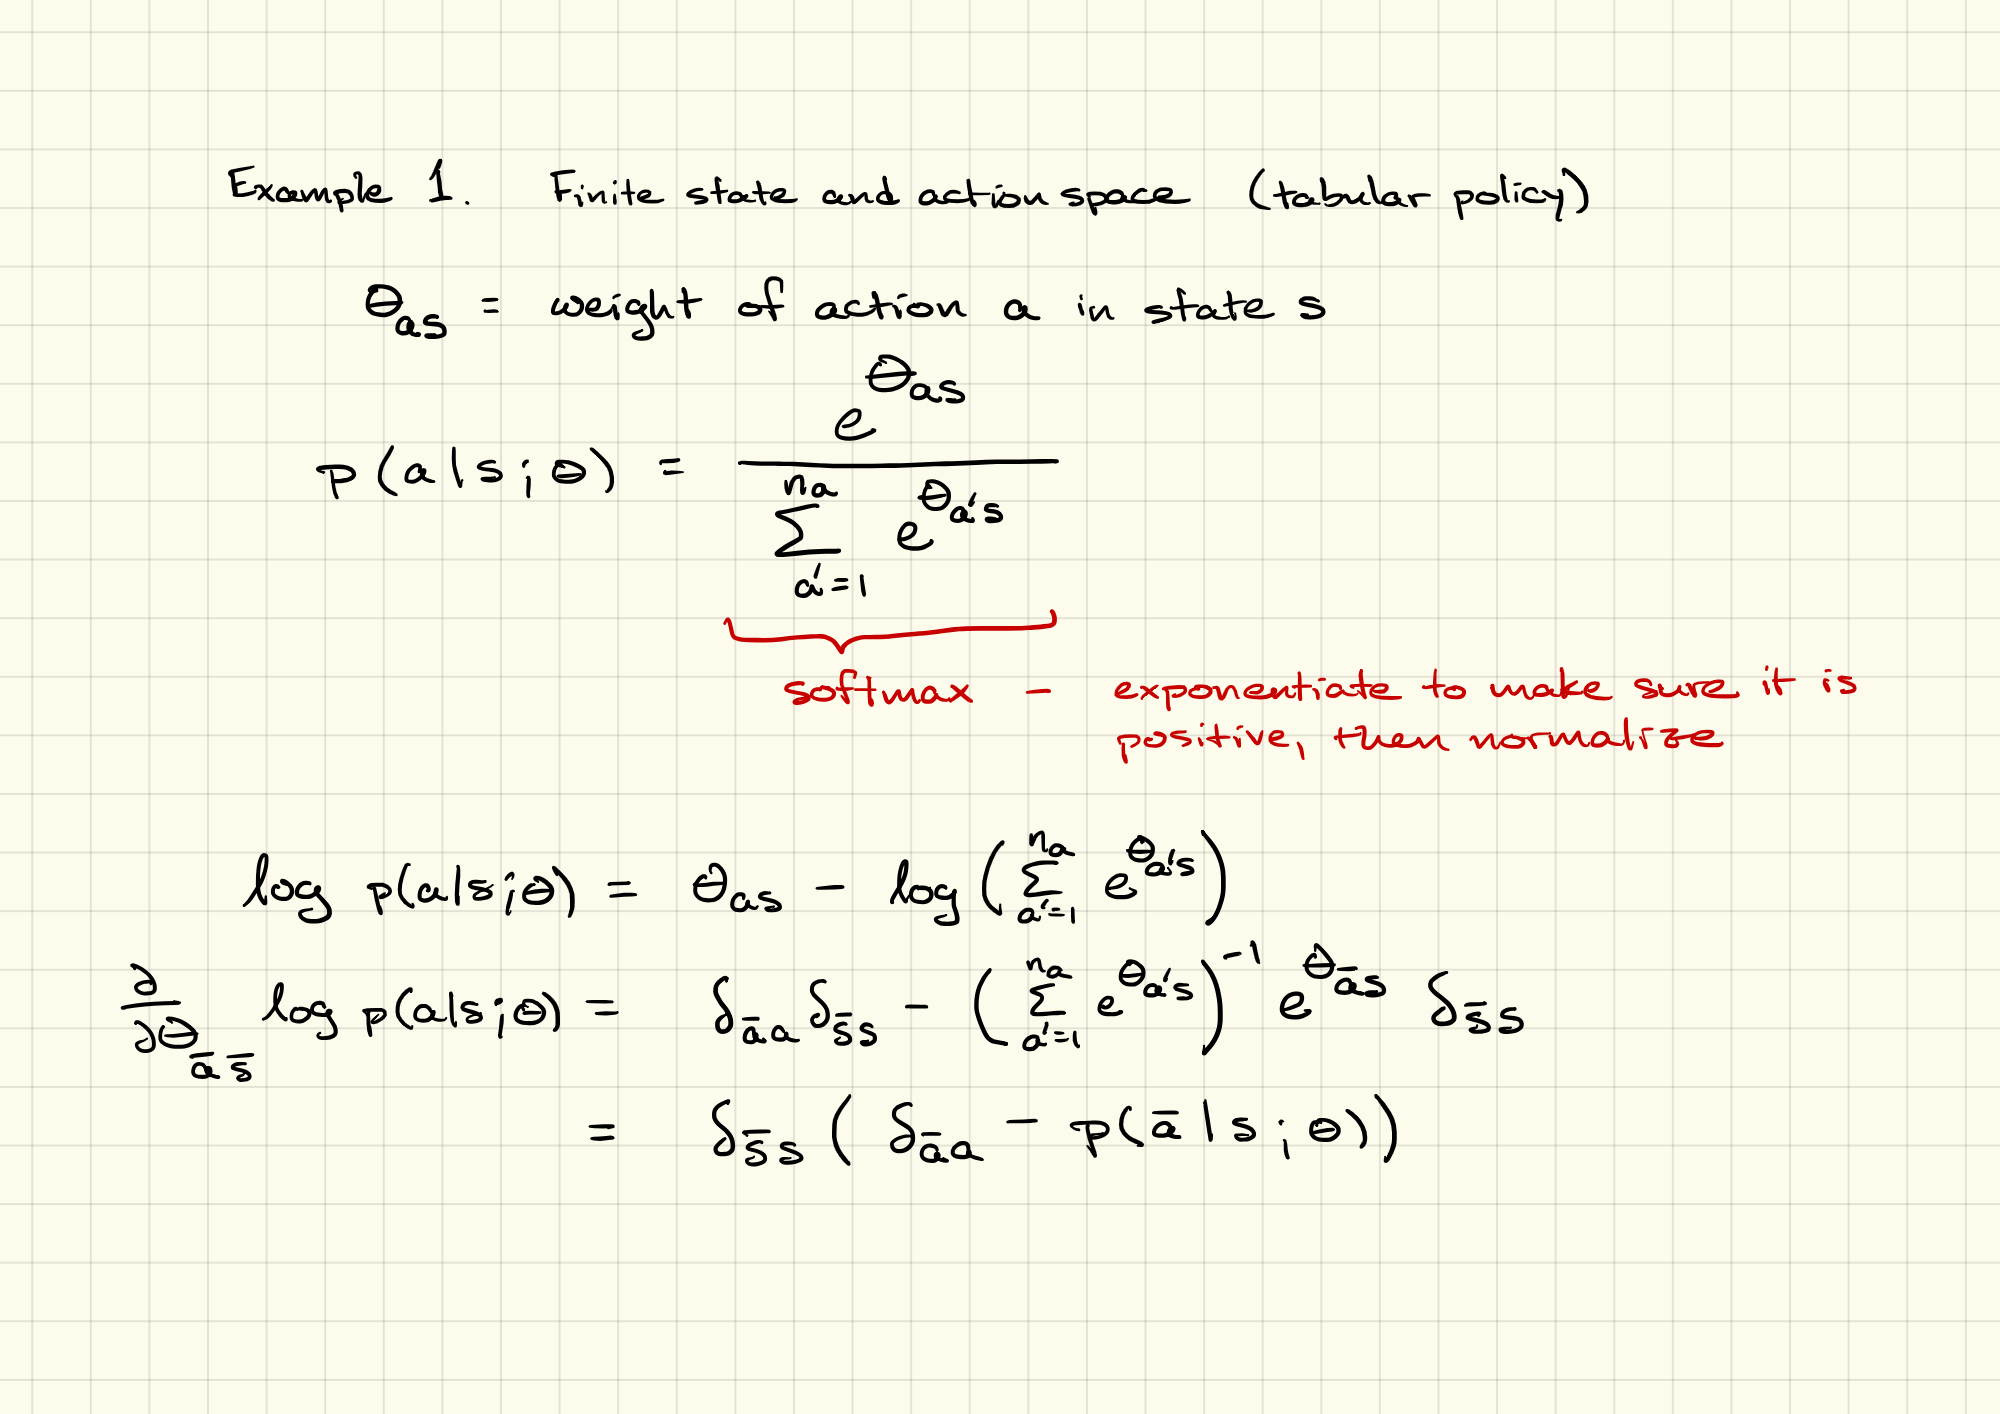 Example 1. Finite state and action space (tabular policy)
θ_as = weight of action a in state s
p(a|s;θ) = e^{θ_as} / ∑_{a'=1}^{n_a} e^{θ_a's}
softmax – exponentiate to make sure it is
positive, then normalize
log p(a|s;θ) = θ_as − log(∑_{a'=1}^{n_a} e^{θ_a's})
∂/∂θ_{a̅s̅} log p(a|s;θ) = δ_{a̅a} δ_{s̅s} − (∑_{a'=1}^{n_a} e^{θ_a's})^{-1} e^{θ_{a̅s}} δ_{s̅s}
= δ_{s̅s} (δ_{a̅a} − p(a̅|s;θ))